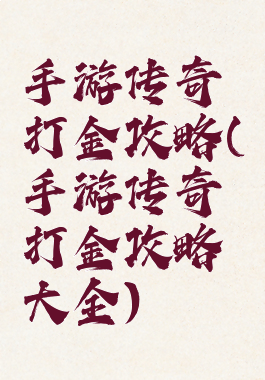 手游传奇
打金攻略(
手游传奇
打金攻略
大全)